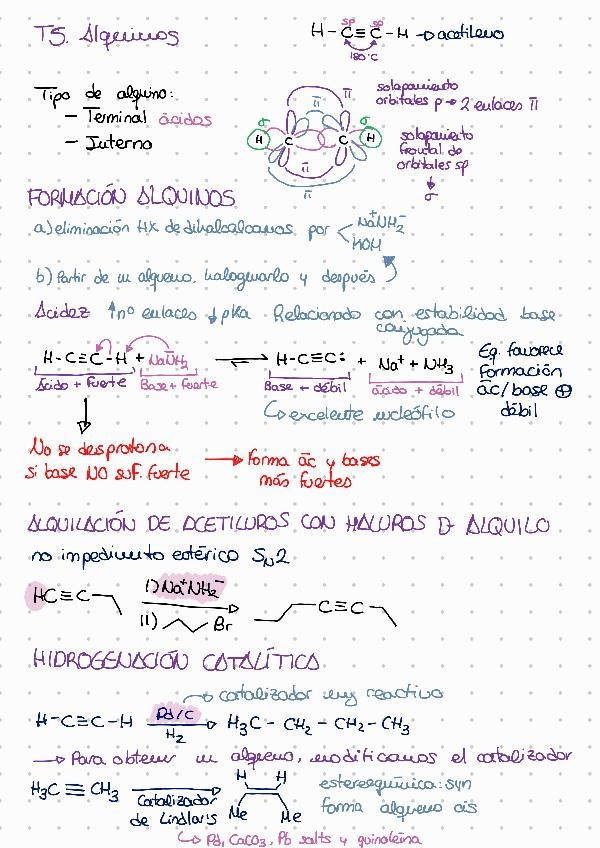 T5. Alquinos
sp sp
H-C≡C-H → acetileno
180°C
Tipo de alquino:
- Terminal ácidos
- Interno
solapamiento
orbitales p → 2 enlaces π
π
π
σ σ
H C C H
π
π
solapamiento
frontal de
orbitales sp
↓
σ
FORMACIÓN ALQUINOS
a) eliminación HX de dihaloalcanos por < Na⁺NH₂⁻
KOH
b) Partir de un alqueno, halogenarlo y después
Acidez ↑nº enlaces ↓pKa Relacionado con estabilidad base
conjugada
H-C≡C-H + NaNH₂ ⇌ H-C≡C: + Na⁺ + NH₃
Ácido + fuerte Base + fuerte Base + débil ácido + débil
Eq. favorece
Formación
ác/base ⊕
débil
↳ excelente nucleófilo
No se desprotona
si base NO suf. fuerte
→ Forma ác y bases
más fuertes
ALQUILACIÓN DE ACETILUROS CON HALUROS D ALQUILO
no impedimento estérico SN2
HC≡C
i) Na⁺NH₂⁻
ii) Br
C≡C
HIDROGENACIÓN CATALÍTICA
→ catalizador muy reactivo
H-C≡C-H Pd/C H₃C - CH₂ - CH₂ - CH₃
H₂
→ Para obtener un alqueno, modificamos el catalizador
H₃C ≡ CH₃
Catalizador
de Lindlaris
H H
Me Me
estereoquímica: syn
forma alqueno cis
↳ Pd, CaCO₃, Pb salts y quinoleína